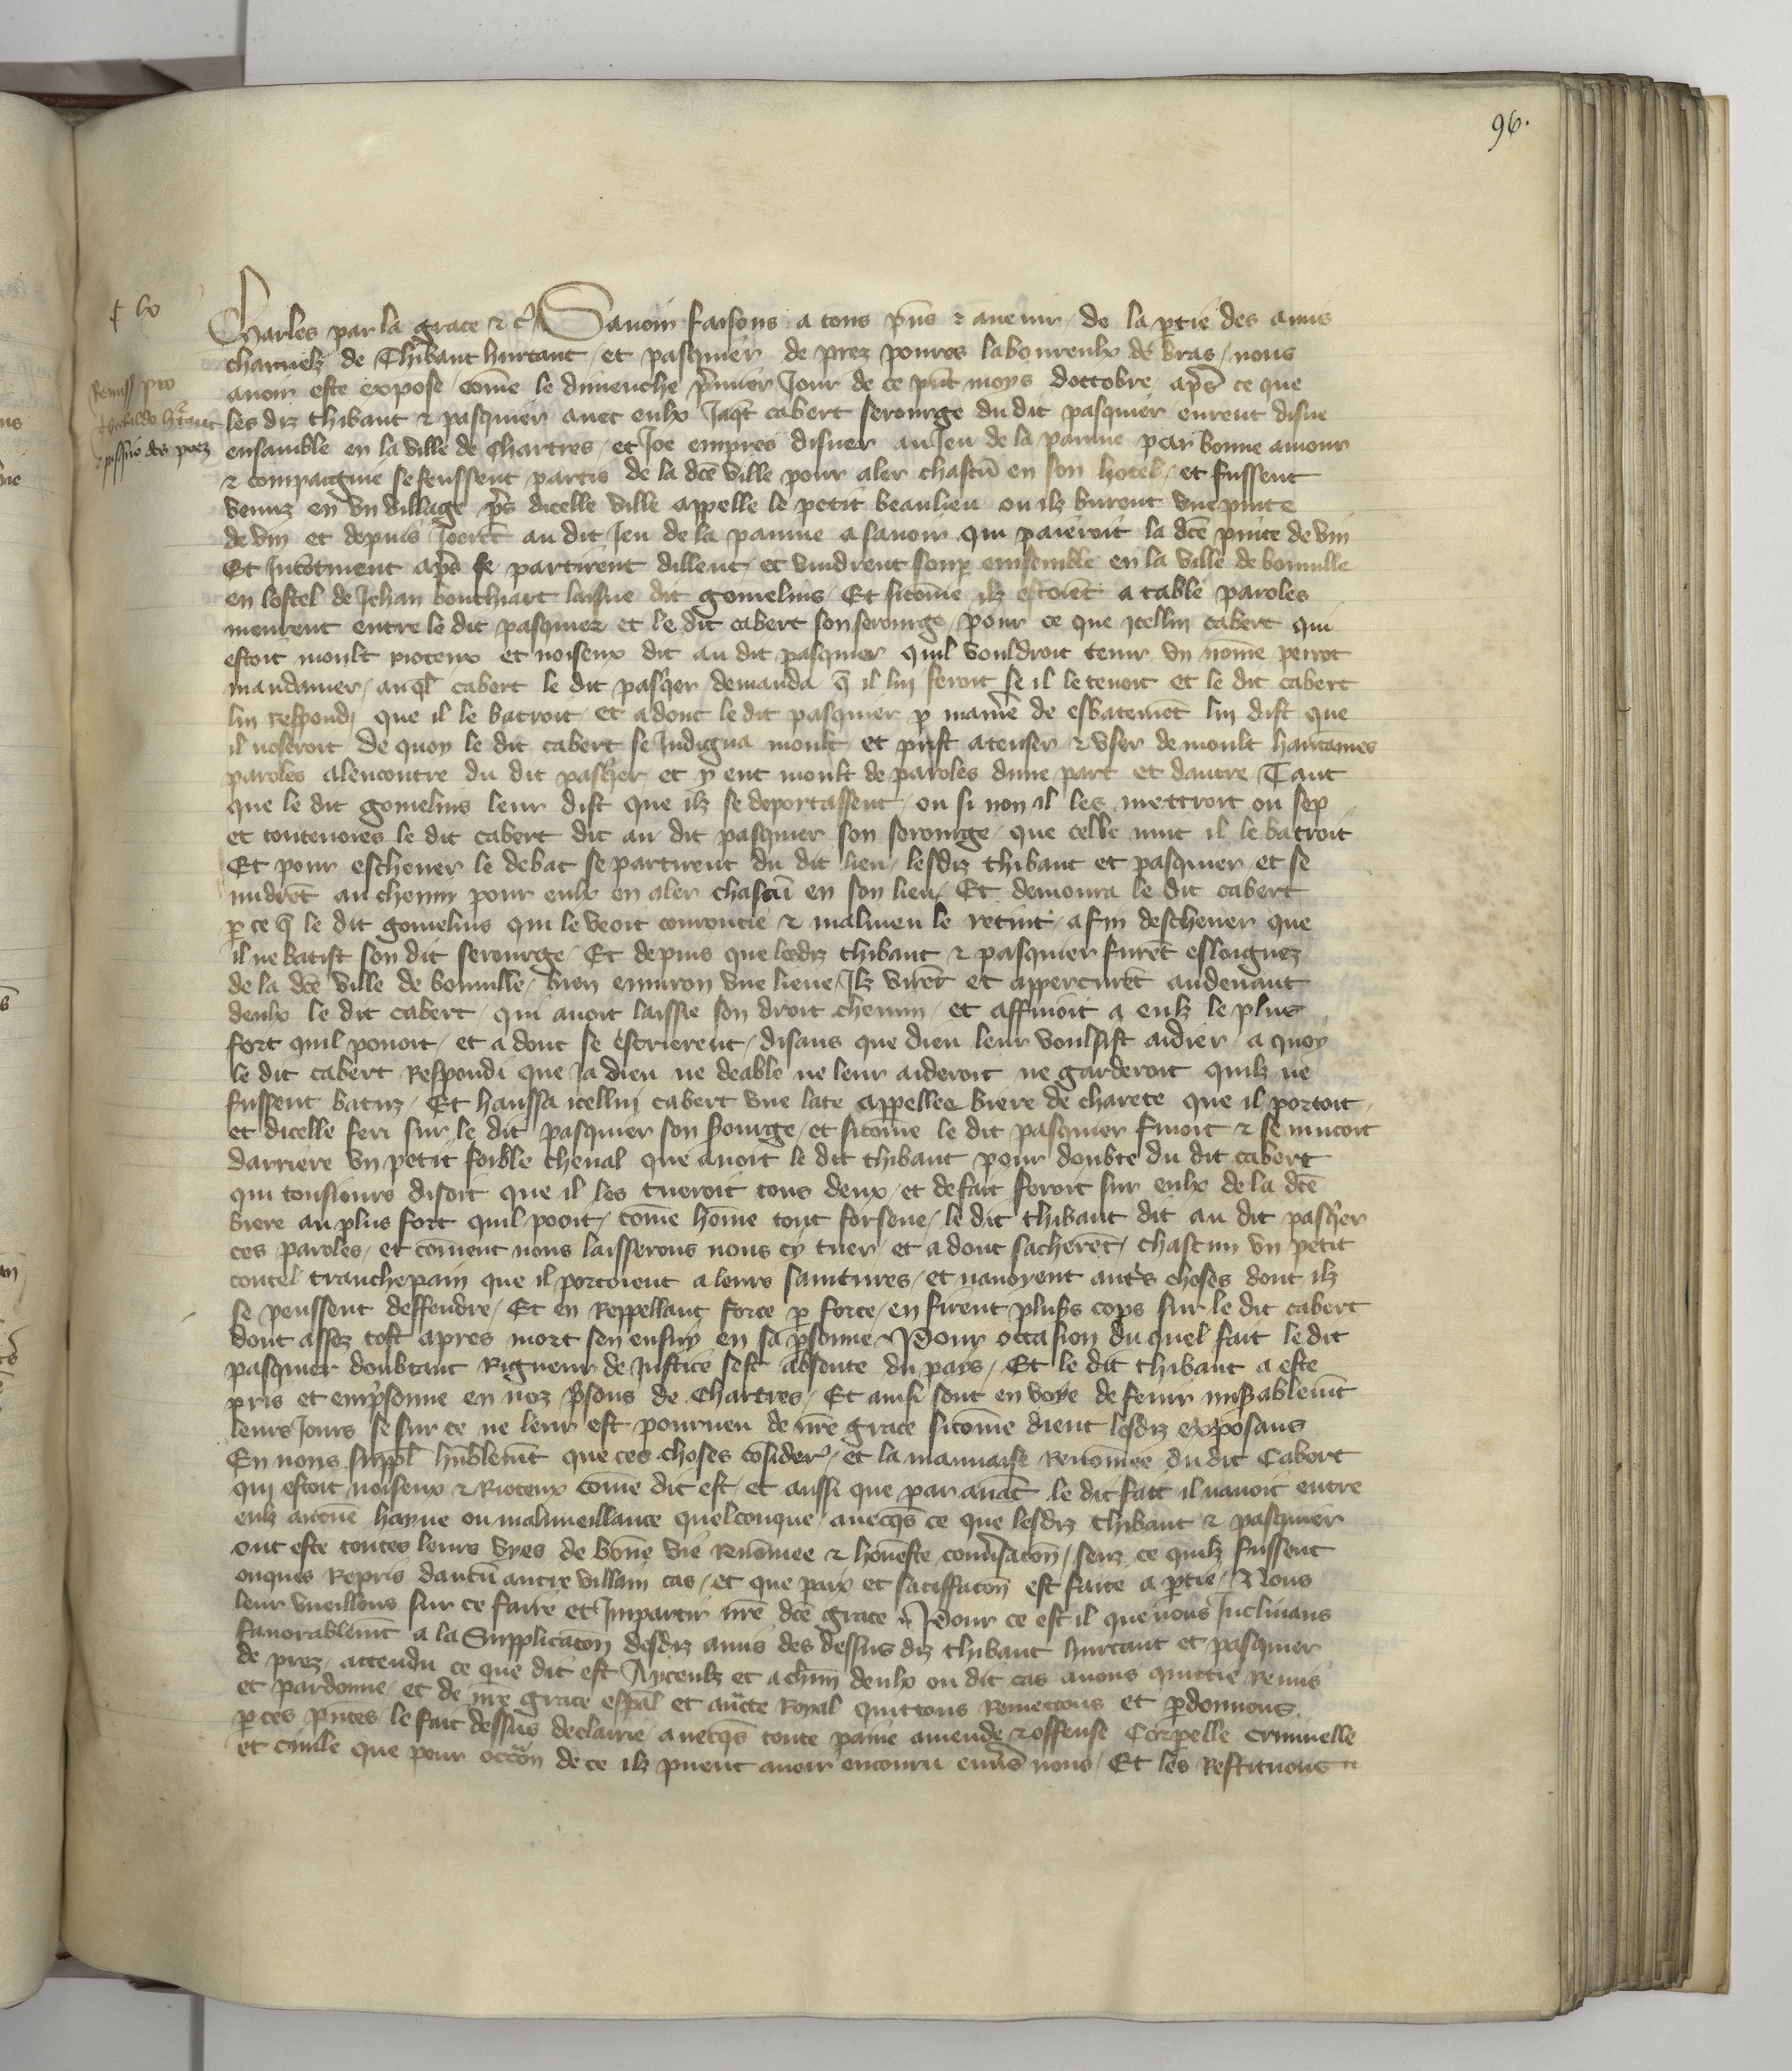 96.
Charles par la grace & c̃ Sauoir faisons a tous p̃ns & auenir de la p̱tie des amis
charnelz de Thibaut hurtaut / et pasquier de prez poures laboureulx de bras / nous
auoir este expose / com̃e le dimenche p̃mier Jour de ce p̃nt moys doctobre / ap̃s ce que
Remiss pro
les diz thibaut & pasquier auec eulx Jaq̃t cabert serourge du dit pasquier eurent disne
ensamble en la ville de Chartres / et Joe empres disner au Jeu de la paume par bonne amour
& compaignie se feussent partis de la dc̃e ville pour aler chascũ en son hotel / et fussent
venuz en vn village p̃s dicelle ville appelle le petit beaulieu ou ilz burent vne pinte
de vin et depuis Joerẽt au dit Jeu de la paume a sauoir qui paieroit la dc̃e pinte de vin
Et Incõtinent ap̃s se partirent dillent / et vindrent soup̱ ensemble en la ville de bonuille
en lostel de Jehan bouthiart laisne dit gomelius / Et sicom̃e ilz estoiẽt a table paroles
meurent entre le dit pasquier et le dit cabert son serourge / pour ce que icellui cabert qui
estoit moult rioteux et noiseux dit au dit pasquier quil vouldroit tenir vn nom̃e perrot
mandauier / auq̃l cabert le dit pasq̃er demanda q̃ il lui feroit se il le tenoit et le dit cabert
lui respondi que il le batroit / et adonc le dit pasquier p̱ manie de esbatemẽt lui dist que
il noseroit de quoy le dit cabert se Indigna moult et prist a tenser & vser de moult haultaines
paroles alencontre du dit pasq̃er et y eut moult de paroles dune part et dautre / Tant
que le dit gomelius leur dist que ilz se deportassent / ou si non il les mettroit ou sep
et toutenoies le dit cabert dit au dit pasquier son serourge / que celle nuit il le batroit
Et pour escheuer le debat se partirent du dit lieu / lesdiz thibaut et pasquier et se
midrẽt au chemin pour eulx en aler chascũ en son lieu / Et demoura le dit cabert
p̱ ce q̃ le dit gomelius qui le veoit couroucie & malmeu le retint / afin descheuer que
il ne batist son dit serourge / Et depuis que lesdiz thibaut & pasquier furẽt esloignez
de la dc̃e ville de bonuille / bien enuiron vne lieue / Ilz virẽt et apperceurẽt audeuant
deulx le dit cabert / qui auoit laissie son droit chemin / et affinoit a eulz le plus
fort quil pouoit / et adonc se escrierent / disans que dieu leur voulsist aidier / a quoy
le dit cabert Respondi que Ja dieu ne deable ne leur aideroit ne garderoit quilz ne
fussent batuz / Et haussa icellui cabert vne late appellee biere de charete que il portoit
et dicelle feri sur le dit pasquier son s̃ourge / et sicom̃e le dit pasquier fuioit & se mucoit
darriere vn petit foible cheual que auoit le dit thibaut pour doubte du dit cabert
qui tousiours disoit que il les tueroit tous deux / et de fait feroit sur eulx de la dc̃e
biere au plus fort quil pooit / com̃e hom̃e tout forsene / le dit thibaut dit au dit pasq̃er
ces paroles / et com̃ent nous laisserons nous cy tuer / et adonc sacherẽt / chascun vn petit
coutel tranchepain que il portoient a leurs saintures / et nauoyent aut̃s choses dont ilz
se peussent deffendre / Et en Reppellant force p̱ force / en firent plus̃s cops sur le dit cabert
dont assez tost apres mort sen ensuy en sa p̱sonne / Pour occasion du quel fait le dit
pasquier doubtant Rigueur de Justice sest absente du pais / Et le dit thibaut a este
pris et emp̃sonne en noz p̃sons de Chartres / Et ainsi sont en voye de fenir mis̃ablem̃t
leurs Jours se sur ce ne leur est pourueu de nr̃e grace sicom̃e dient lesdiz exposans
En nous suppl̃ hũblem̃t que ces choses cõsider̃ / et la mauuaise Renom̃ee du dit Cabert
qui estoit noiseux & Rioteux com̃e dit est / et aussi que par auãt le dit fait il nauoit entre
eulz aucũe hayne ou malueillance quelconque / auecq̃s ce que lesdiz thibaut & pasquier
ont este toutes leurs vyes de bõne vie Renõmee & hon̄este conu̓sacõn / senz ce quilz fussent
onques Repris daucũ autre villain cas / et que paix et satisffacõn est faite a p̱tie / Nous
leur vueillons sur ce faire et Impartir nr̃e dc̃e grace / Pour ce est il que nous Inclinans
fauorablem̃t a la Supplicacõn desdiz amis des dessus diz thibaut hurtaut et pasquier
de prez / attendu ce que dit est Ayceulz et a chũn deulx ou dit cas auons quittie Remis
et pardonne / et de nr̃e grace esp̃al et auct̃e Royal quittons Remettons et p̱donnons
p̱ ces p̃ntes / le fait dessus declairie / auecq̃s toute paine amende & offense Corp̱elle criminelle
et ciuile que pour occãon de ce ilz peuent auoir encouru enu̓s nous / Et les Restituons